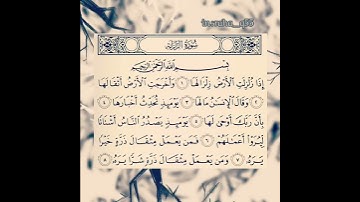 سُورَةُ الزَّلْزَلَة
بِسْمِ اللَّهِ الرَّحْمَٰنِ الرَّحِيمِ
إِذَا زُلْزِلَتِ الْأَرْضُ زِلْزَالَهَا ١ وَأَخْرَجَتِ الْأَرْضُ أَثْقَالَهَا
٢ وَقَالَ الْإِنسَانُ مَا لَهَا ٣ يَوْمَئِذٍ تُحَدِّثُ أَخْبَارَهَا ٤
بِأَنَّ رَبَّكَ أَوْحَىٰ لَهَا ٥ يَوْمَئِذٍ يَصْدُرُ النَّاسُ أَشْتَاتًا
لِّيُرَوْا أَعْمَالَهُمْ ٦ فَمَن يَعْمَلْ مِثْقَالَ ذَرَّةٍ خَيْرًا
يَرَهُ ٧ وَمَن يَعْمَلْ مِثْقَالَ ذَرَّةٍ شَرًّا يَرَهُ ٨